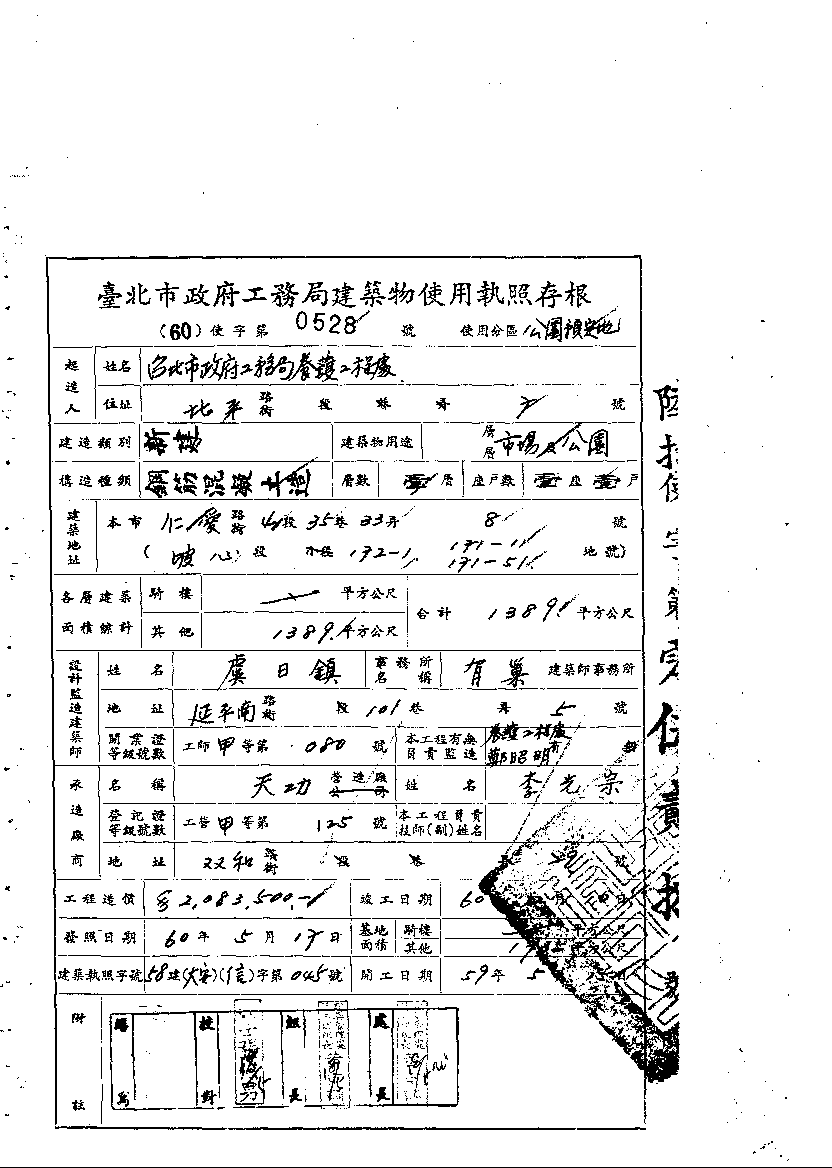 臺北市政府工務局建築物使用執照存根
(60)使字第 0528 號 使用分區 公園預定地
起造人 姓名 台北市政府工務局養護工程處
住址 北平 路街 段 縣 弄 2 號
建造類別 新建 建築物用途 層層 市場及公園
構造種類 鋼筋混凝土造 層數 壹 層 座戶數 壹 座 壹 戶
建築地址 本市 仁愛 路街 4 段 35 巷 33 弄 8 號
(坡心 段 小段 172-1, 171-11, 171-51 地號)
各層建築面積總計 騎樓 平方公尺 合計 1389. 平方公尺
其他 1389. 平方公尺
設計監造建築師 姓名 虞日鎮 事務所名稱 有巢 建築師事務所
地址 延平南 路街 段 101 巷 弄 5 號
開業證等級號數 工師甲等第 080 號 本工程有無負責監造 養護工程處 鄭昭明
承造廠商 名稱 天功 營造廠公司 姓名 李光宗
登記證等級號數 工營甲等第 125 號 本工程負責技師(副)姓名
地址 双和 路街 段 巷 號
工程造價 2,083,500.- 竣工日期 60
發照日期 60 年 5 月 17 日 基地面積 騎樓 平方公尺
其他 平方公尺
建築執照字號 58 建(大安)(信)字第 045 號 開工日期 59 年 5
附註
校對 組長 處長